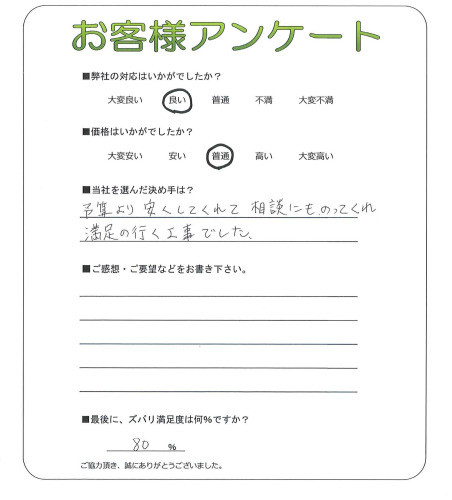 お客様アンケート
■弊社の対応はいかがでしたか？
大変良い 良い 普通 不満 大変不満
■価格はいかがでしたか？
大変安い 安い 普通 高い 大変高い
■当社を選んだ決め手は？
予算より安くしてくれて相談にものってくれ
満足の行く工事でした。
■ご感想・ご要望などをお書き下さい。
■最後に、ズバリ満足度は何％ですか？
80 %
ご協力頂き、誠にありがとうございました。